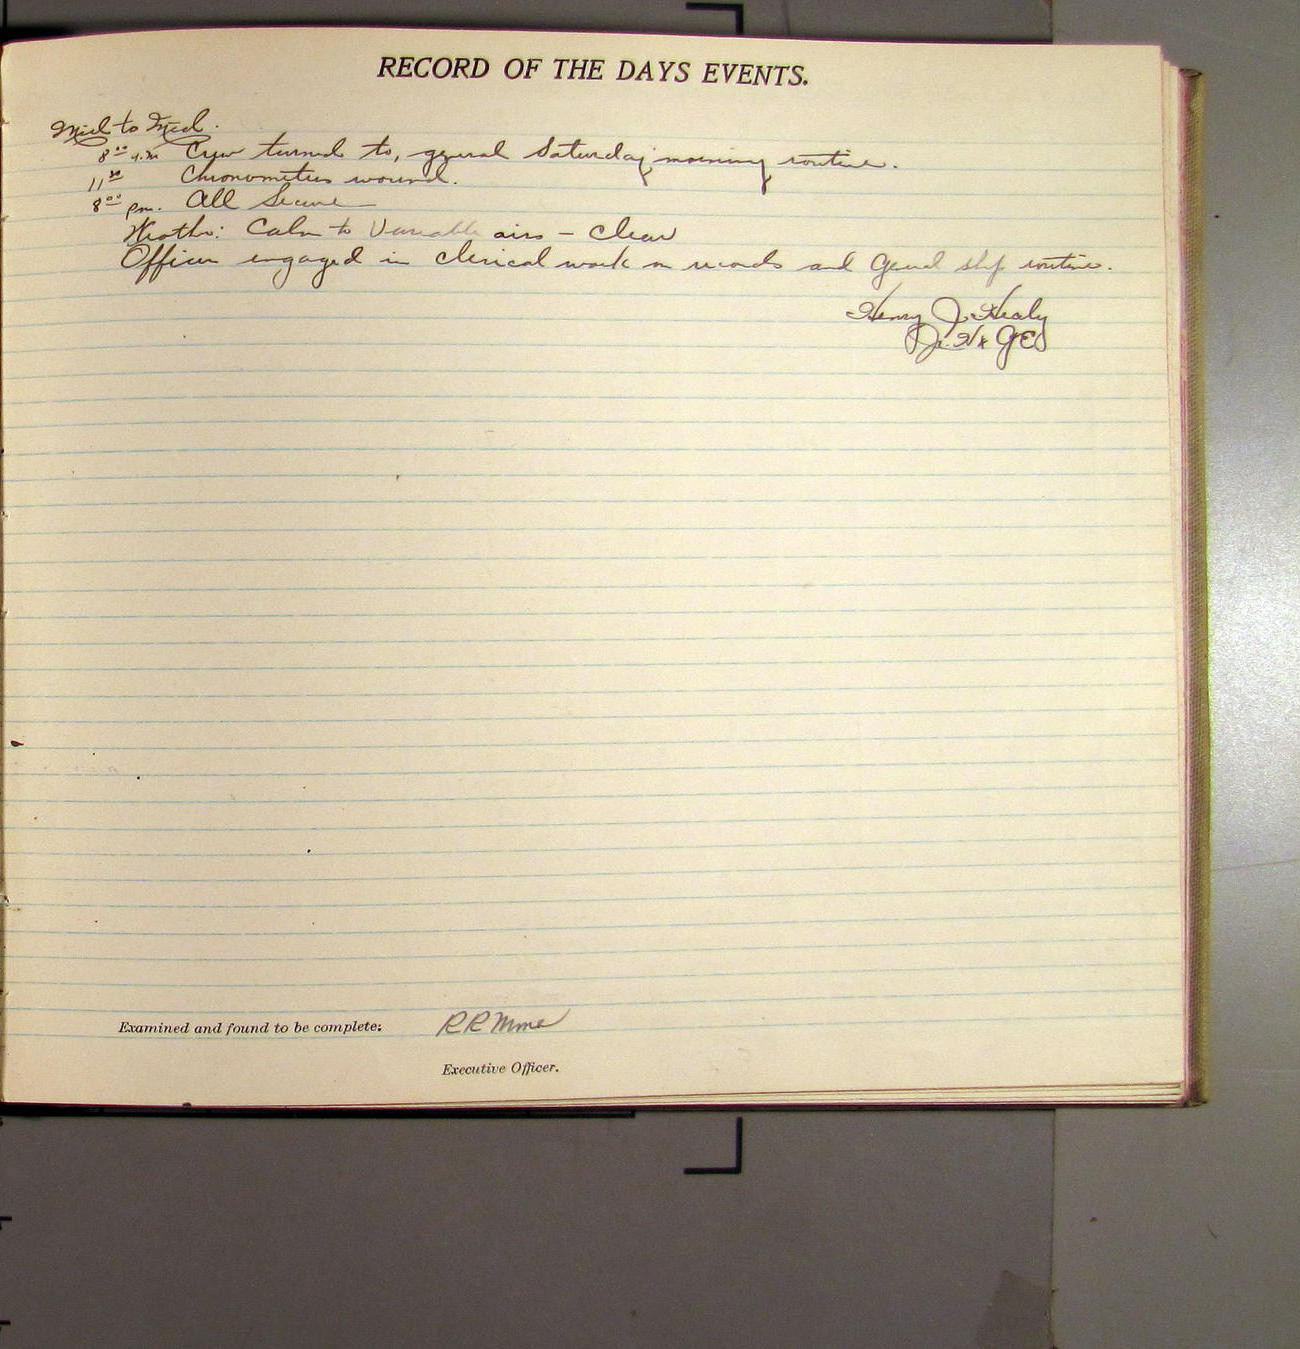 RECORD OF THE DAYS EVENTS.
Mid to Mid.
8 00 a.m Crew turned to, general Saturday morning routine.
11 Chronometers wound.
8 00 pm. All Secure
Weather: Calm to Variable airs – Clear
Officers engaged in clerical work on records and general ship routine.
Henry J. Healy
Jr. H & GE
Examined and found to be complete:
Executive Officer.